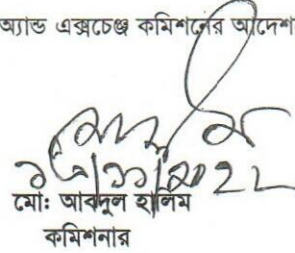 অ্যান্ড এক্সচেঞ্জ কমিশনের আদেশ
মোঃ আবদুল হালিম
কমিশনার